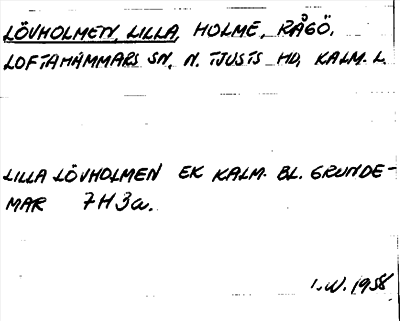 LÖVHOLMEN, LILLA, HOLME, RÅGÖ,
LOFTAHAMMARS SN, N. TJUSTS HD, KALM. L.
LILLA LÖVHOLMEN EK KALM. BL. GRUNDE-
MAR 7H3a.
I.W. 1958